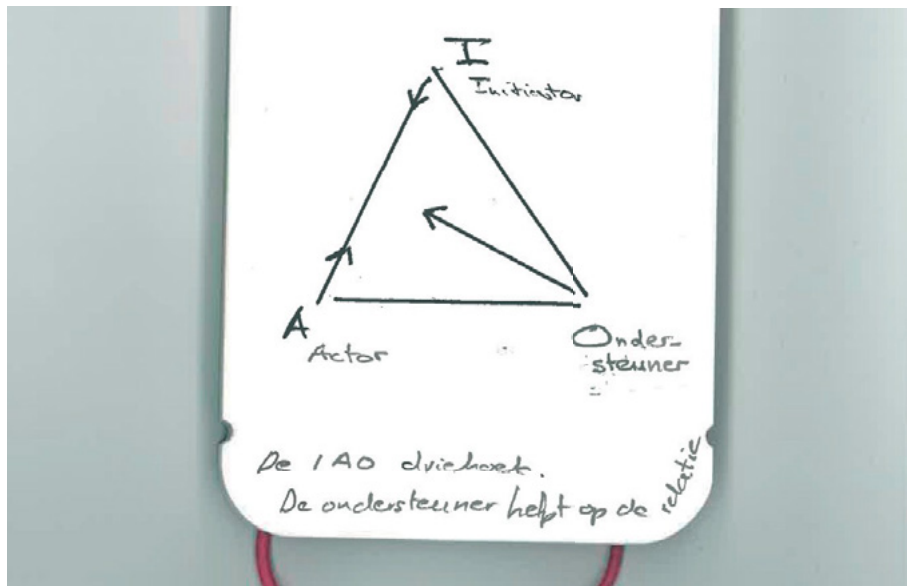 I
Initiator
A
Actor
Onder-
steuner
De IAO driehoek.
De ondersteuner helpt op de relatie